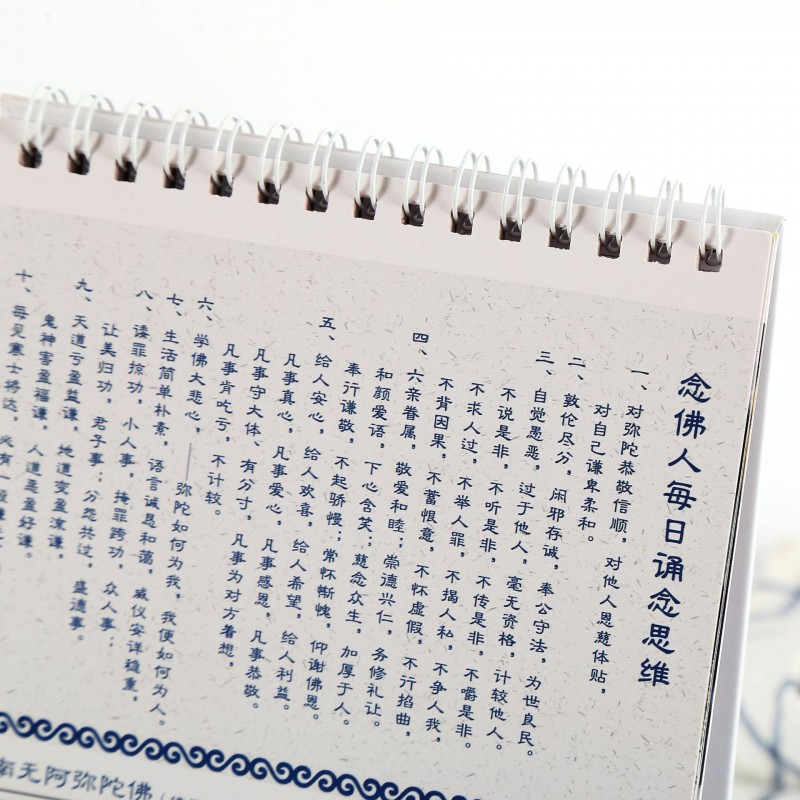 念佛人每日诵念思维
一、对弥陀恭敬信顺，对他人恩慈体贴，
对自己谦卑柔和。
二、敦伦尽分，闲邪存诚，奉公守法，为世良民。
三、自觉愚恶，过于他人，毫无资格，计较他人。
不说是非，不听是非，不传是非，不嚼是非。
不求人过，不举人罪，不揭人私，不争人我，
不背因果，不蓄恨意，不怀虚假，不行掐曲，
四、六亲眷属，敬爱和睦；崇德兴仁，务修礼让。
和颜爱语，下心含笑；慈念众生，加厚于人。
奉行谦敬，不起骄慢；常怀惭愧，仰谢佛恩。
五、给人安心，给人欢喜，给人希望，给人利益。
凡事真心，凡事爱心，凡事感恩，凡事恭敬。
凡事守大体、有分寸，凡事为对方着想，
凡事肯吃亏，不计较。
六、学佛大悲心，——弥陀如何为我，我便如何为人。
七、生活简单朴素，语言诚恳和蔼，威仪安详稳重，
八、诿罪掠功，小人事，掩罪跨功，众人事；
让美归功，君子事；分怨共过，盛德事。
九、天道亏盈益谦，地道变盈流谦，
鬼神害盈福谦，人道恶盈好谦。
十、每见寒士将达，必有一段谦
南无阿弥陀佛